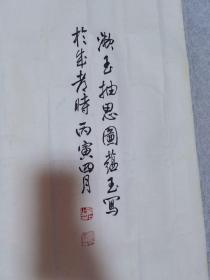 漱玉抽思圖蘊玉寫
於成都時丙寅四月